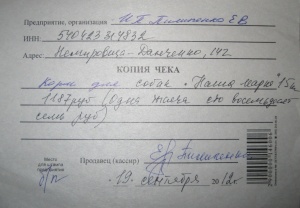 Предприятие, организация ИП Пилипенко ЕВ
ИНН: 540423814832
Адрес Немировича-Данченко, 142
КОПИЯ ЧЕКА
Корм для собак "Наша марка" 15кг
1187руб (Одна тысяча сто восемьдесят
семь руб)
Продавец (кассир)
Место для штампа предприятия
б/п
19 сентября 2012г